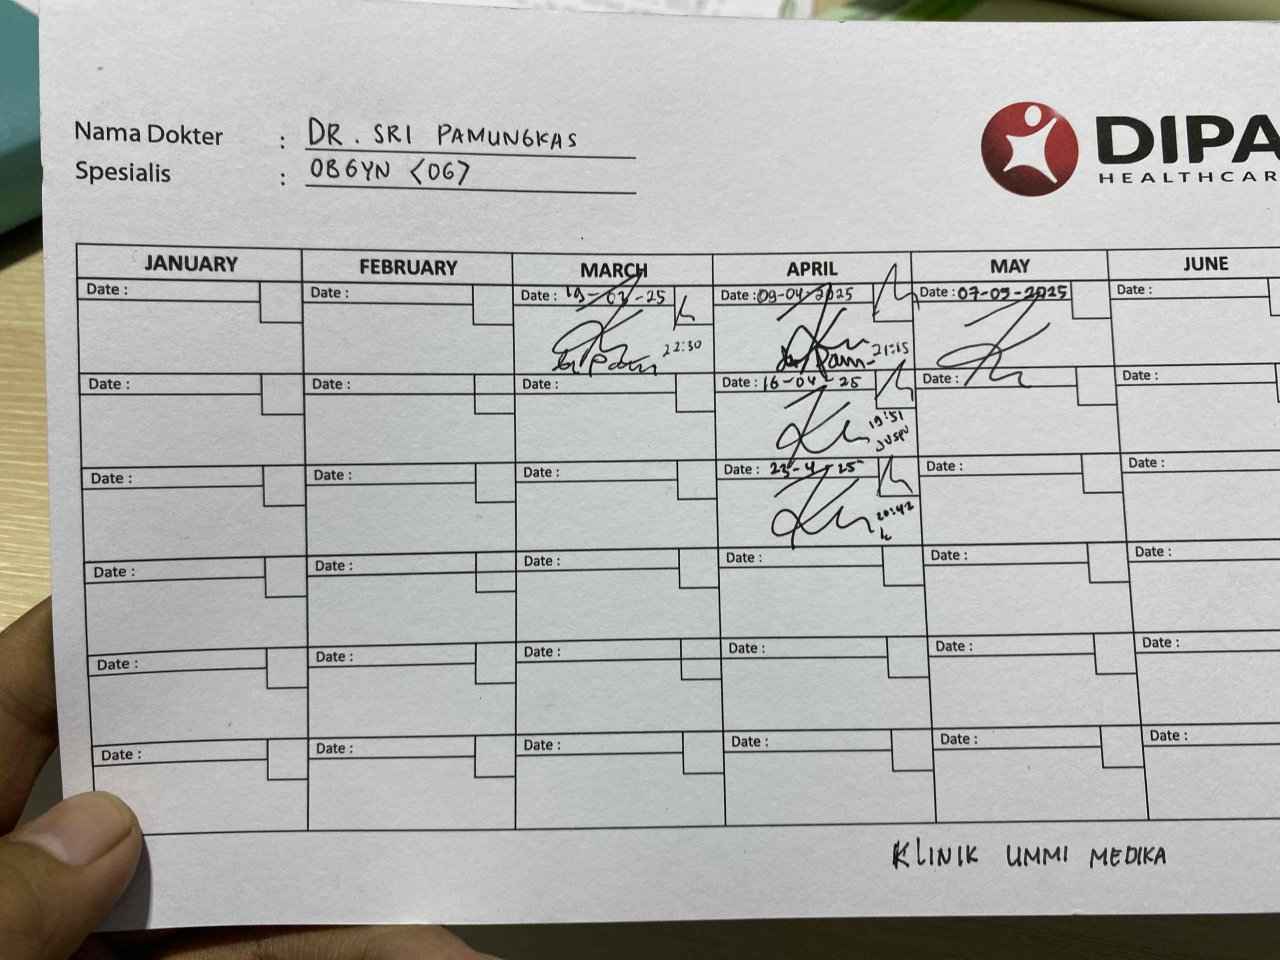 Nama Dokter : DR. SRI PAMUNGKAS
Spesialis : OBGYN <OG>
DIPA
HEALTHCAR
JANUARY FEBRUARY MARCH APRIL MAY JUNE
Date : Date : Date : 19-03-25 Date : 09-04-2025 Date : 07-05-2025 Date :
22:30 21:15
Date : Date : Date : Date : 16-04-25 Date : Date :
19:51
Date : Date : Date : Date : 23-4-25 Date : Date :
20:42
Date : Date : Date : Date : Date : Date :
Date : Date : Date : Date : Date : Date :
Date : Date : Date : Date : Date : Date :
KLINIK UMMI MEDIKA